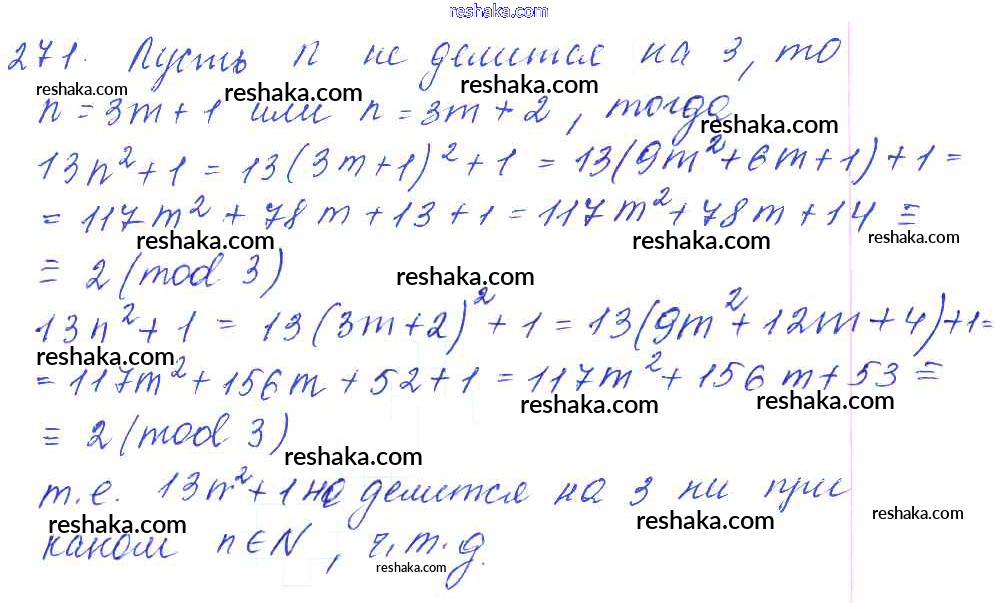 reshaka.com
271. Пусть n не делится на 3, то
reshaka.com reshaka.com reshaka.com
n = 3m + 1 или n = 3m + 2, тогда
reshaka.com
13n² + 1 = 13(3m+1)² + 1 = 13(9m² + 6m + 1) + 1 =
= 117m² + 78m + 13 + 1 = 117m² + 78m + 14 ≡
reshaka.com reshaka.com reshaka.com
≡ 2 (mod 3)
reshaka.com
13n² + 1 = 13(3m+2)² + 1 = 13(9m² + 12m + 4) + 1 =
reshaka.com
= 117m² + 156m + 52 + 1 = 117m² + 156m + 53 ≡
reshaka.com reshaka.com
≡ 2 (mod 3)
reshaka.com
т.е. 13n² + 1 не делится на 3 ни при
reshaka.com reshaka.com reshaka.com
каком n∈N, ч.т.д.
reshaka.com